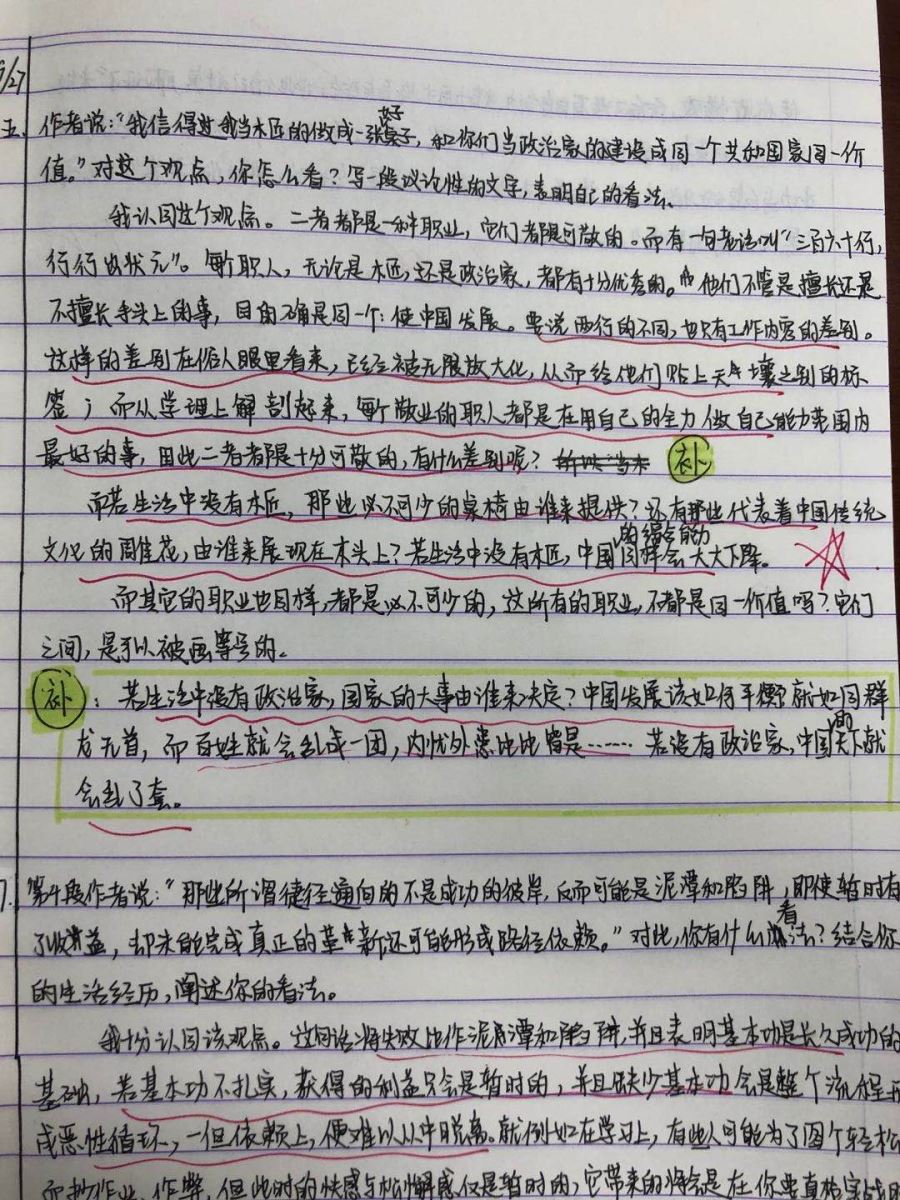 9/27
五. 作者说:“我信得过我当木匠的做成一张好桌子,和你们当政治家的建设成同一个共和国家同一价
值。”对这个观点,你怎么看?写一段议论性的文字,表明自己的看法。
我认同这个观点。二者都是一种职业,它们都是可敬的。而有一句老话叫“三百六十行,
行行出状元”。每个职人,无论是木匠,还是政治家,都有十分优秀的。他们不管是擅长还是
不擅长手头上的事,目的确是同一个:使中国发展。要说两行的不同,也只有工作内容的差别。
这样的差别在俗人眼里看来,已经被无限放大化,从而给他们贴上天壤之别的标
签;而从学理上解剖起来,每个敬业的职人都是在用自己的全力做自己能力范围内
最好的事,因此二者都是十分可敬的,有什么差别呢? 补
而若生活中没有木匠,那些必不可少的桌椅由谁来提供?还有那些代表着中国传统
文化的雕花,由谁来展现在木头上?若生活中没有木匠,中国的综合能力同样会大大下降。
而其它的职业也同样,都是必不可少的,这所有的职业,不都是同一价值吗?它们
之间,是可以被画等号的。
补:若生活中没有政治家,国家的大事由谁来决定?中国发展该如何平衡?就如同群
龙无首,而百姓就会乱成一团,内忧外患比比皆是……若没有政治家,中国的天下就
会乱了套。
7. 第十段作者说:“那些所谓捷径通向的不是成功的彼岸,反而可能是泥潭和陷阱,即使暂时有
了收益,却未能完成真正的革新还可能形成路径依赖。”对比,你有什么看法?结合你
的生活经历,阐述你的看法。
我十分认同该观点。这句话将失败比作泥潭和陷阱,并且表明基本功是长久成功的
基础,若基本功不扎实,获得的利益只会是暂时的,并且缺少基本功会是整个流程
成恶性循环,一但依赖上,便难以从中脱离。就例如在学习上,有些人可能为了图个轻松
而抄作业、作弊,但此时的快感与松懈感仅是暂时的,它带来的将会是在你要真枪实战时